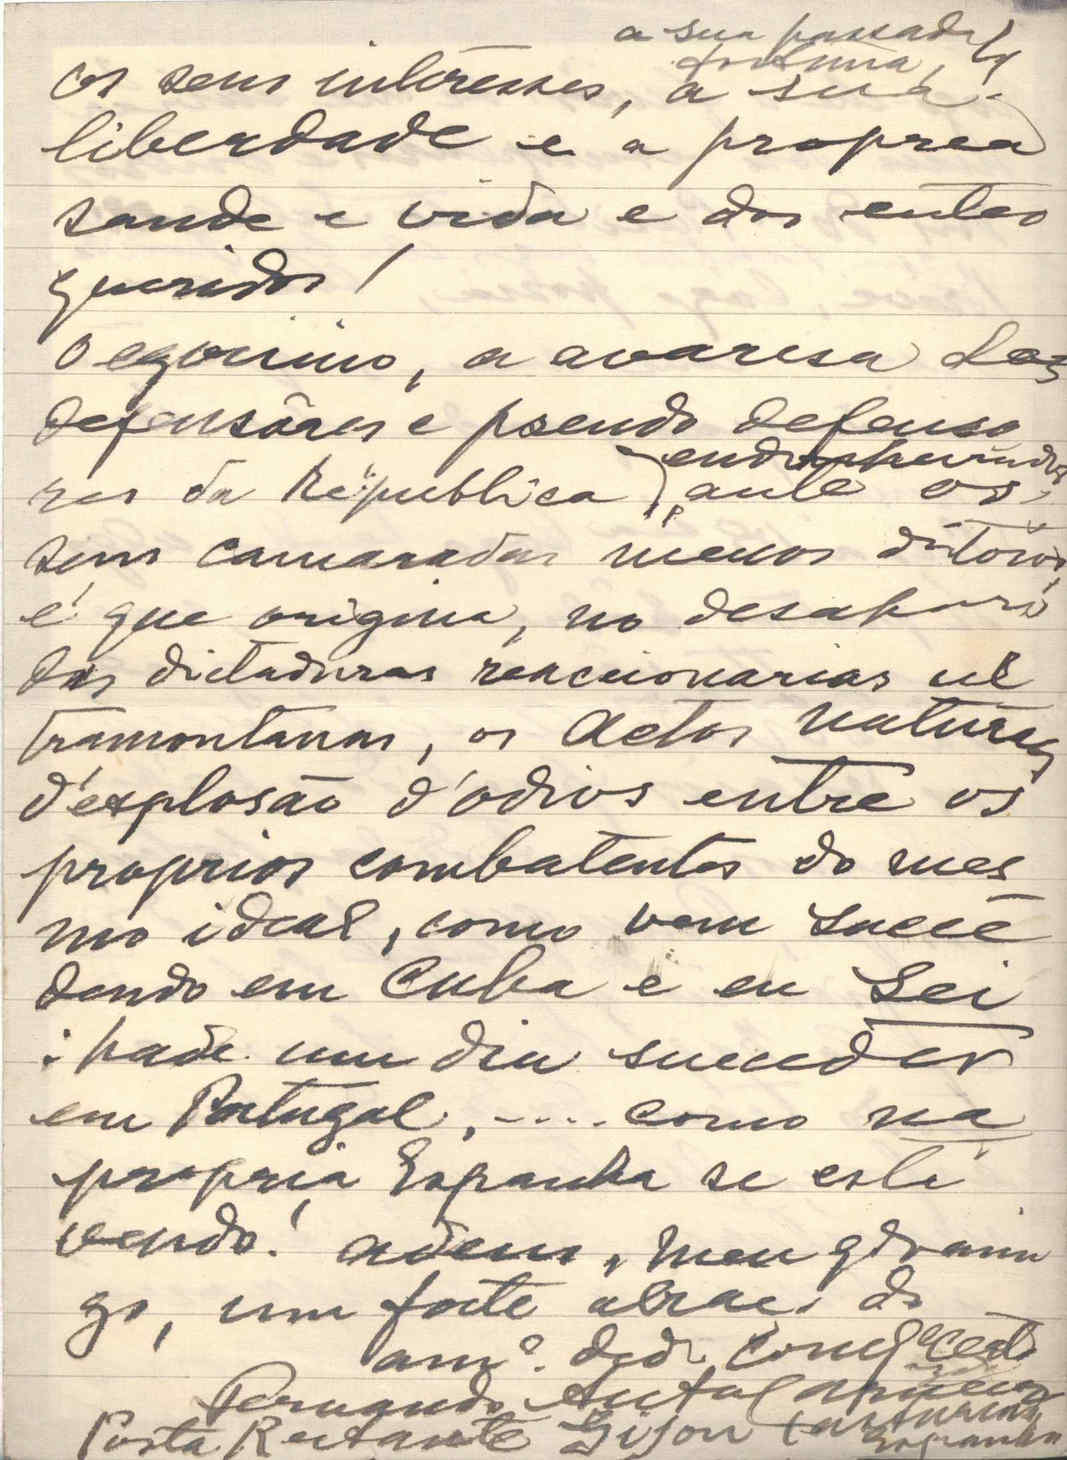 a sua passada
fortuna,
os seus interesses, a sua
liberdade e a proprea
saude e vida e dos entes
queridos!
O egoismo, a avaresa dos
defensôres e pseudo defenso
res da Républica, endinheirados
ante os
seus camaradas menos ditosos,
é que origina, no desabar
das dictaduras reaccionarias ul
tramontanas, os actos naturaes
d'explosão d'odios entre os
proprios combatentes do mes
mo ideal, como vem succe
dendo em Cuba e eu sei
: hade um dia succeder
em Portugal, -.... como na
propria Espanha se está
vendo! adeus, meu gdr ami
go, um forte abraço do
am.º ded.
Fernando
Posta Restante Gijon (Asturias
Espanha